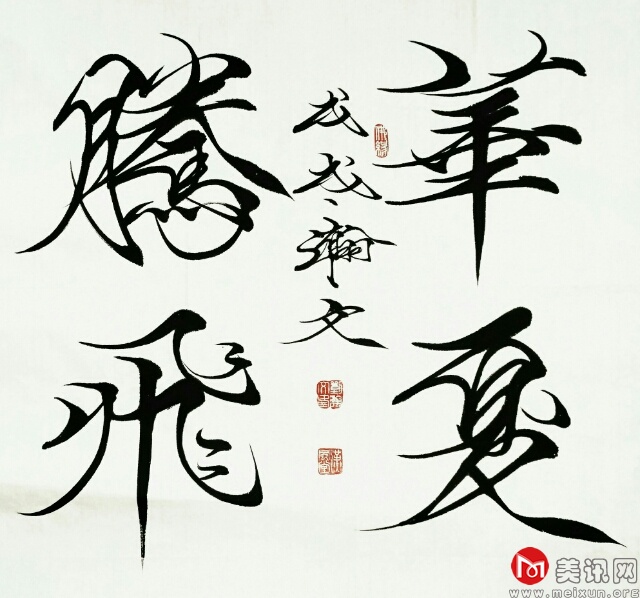 華夏
騰飛
戊戌瀚文
美讯网
www.meixun.org